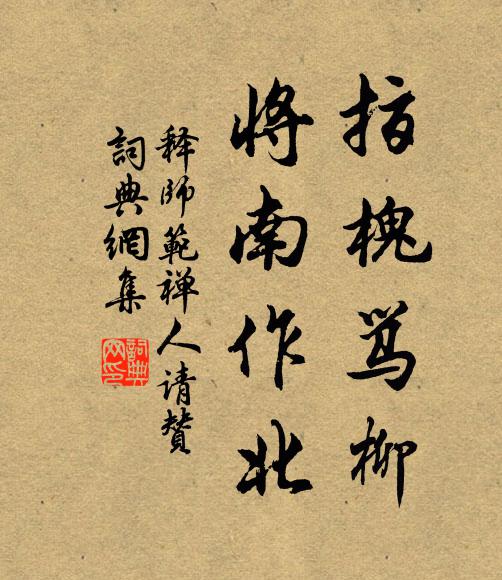 指槐骂柳
将南作北
释师範禅人请赞
詞典網集
詞典網印